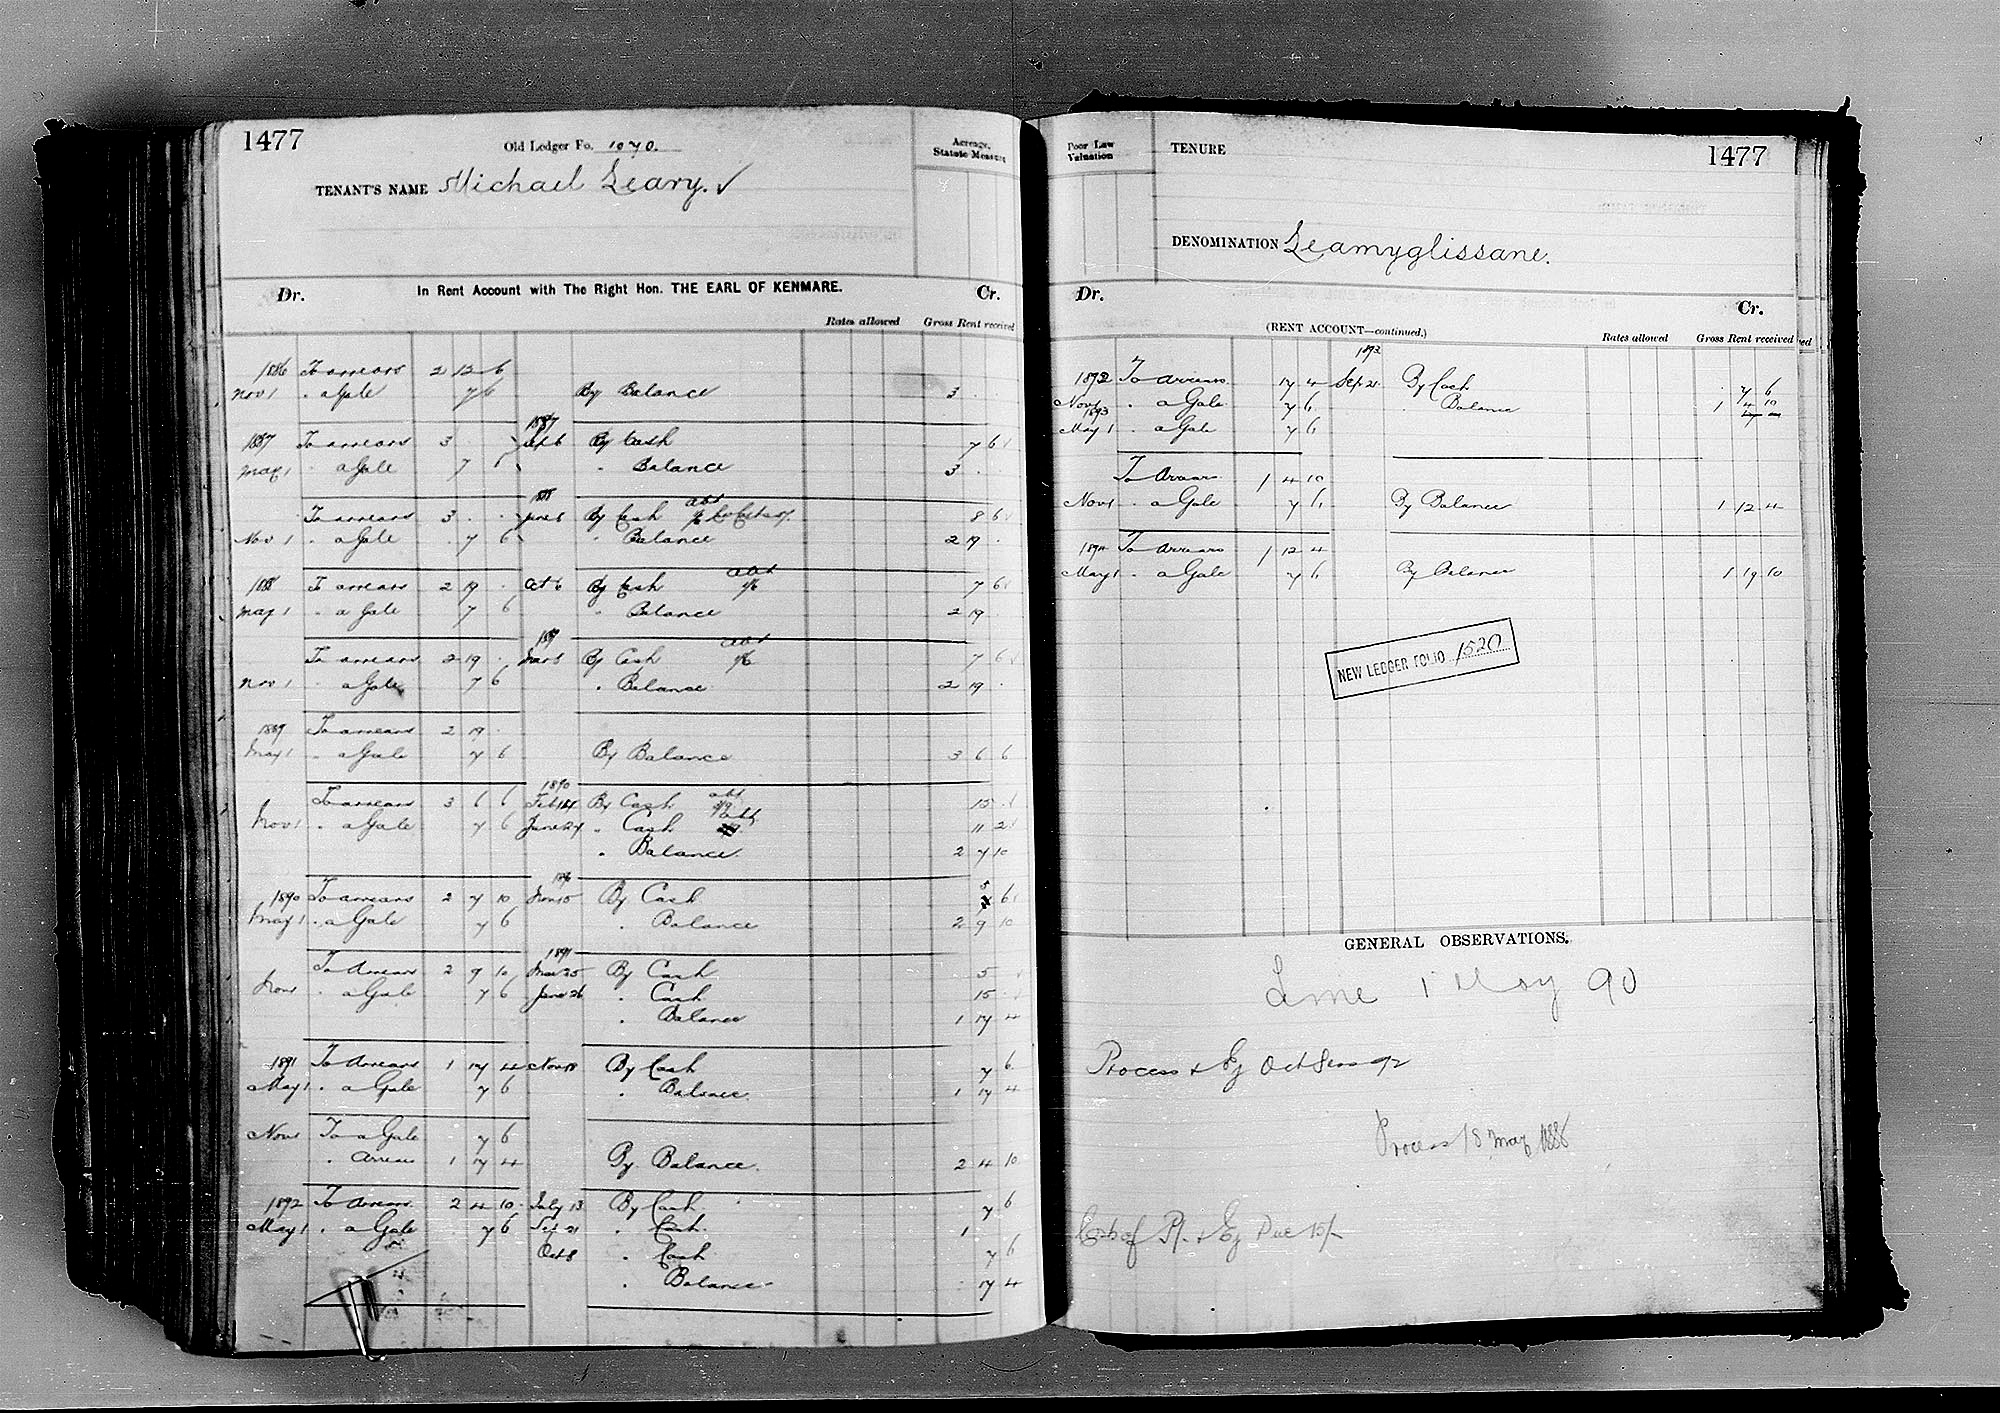 1477
Old Ledger Fo. 1070.
Acreage, Statute Measure
TENANT'S NAME Michael Leary. ✓
Dr. In Rent Account with The Right Hon. THE EARL OF KENMARE. Cr.
Rates allowed Gross Rent received
1886 To arrears 2 12 6
Nov 1 " a Gale 7 6 By Balance 3 . .
1887
1887 To arrears 3 . . Sept 6 By Cash 7 6
May 1 " a Gale 7 6 " Balance 3 . .
1888 abt
To arrears 3 . . June 6 By Cash 8 6
Nov 1 " a Gale 7 6 " Balance 2 19 .
abt
1888 To arrears 2 19 . Oct 6 By Cash 7 6
May 1 " a Gale 7 6 " Balance 2 19
1889 abt
To arrears 2 19 . By Cash 7 6
Nov 1 " a Gale 7 6 " Balance 2 19 .
1889 To arrears 2 19
May 1 " a Gale 7 6 By Balance 3 6 6
1890
To arrears 3 6 6 Feb 14 By Cash abt 15 .
Nov 1 " a Gale 7 6 June 24 " Cash abt 11 2
" Balance 2 7 10
1890
1890 To arrears 2 7 10 Nov 15 By Cash 5 6
May 1 " a Gale 7 6 " Balance 2 9 10
1891
To Arrears 2 9 10 Mar 25 By Cash 5
Nov 1 " a Gale 7 6 June 26 " Cash 15
" Balance 1 17 4
1891 To Arrears 1 17 4 Nov 18 By Cash 7 6
May 1 " a Gale 7 6 " Balance 1 17 4
Nov 1 To a Gale 7 6
" Arrears 1 17 4 By Balance. 2 4 10
1892 To Arrears 2 4 10 July 13 By Cash 7 6
May 1 " a Gale 7 6 Sep 21 " Cash 1
Oct 8 " Cash 7 6
" Balance 17 4
Poor Law Valuation
TENURE
1477
DENOMINATION Leamyglissane.
Dr. Cr.
(RENT ACCOUNT—continued.) Rates allowed Gross Rent received
1893
1892 To Arrears 17 4 Sep. 21 By Cash 7 6
Nov 1 " a Gale 7 6 " Balance 1 4 10
1893
May 1 " a Gale 7 6
To Arrears 1 4 10
Nov 1 " a Gale 7 6 By Balance 1 12 4
1894 To Arrears 1 12 4
May 1 " a Gale 7 6 By Balance 1 19 10
NEW LEDGER FOLIO 1520
GENERAL OBSERVATIONS.
Lime 1 May 90
Process & Ej Oct Sess 92
Process 18 May 1886
Costs of Pr. & Ej Due 10/-